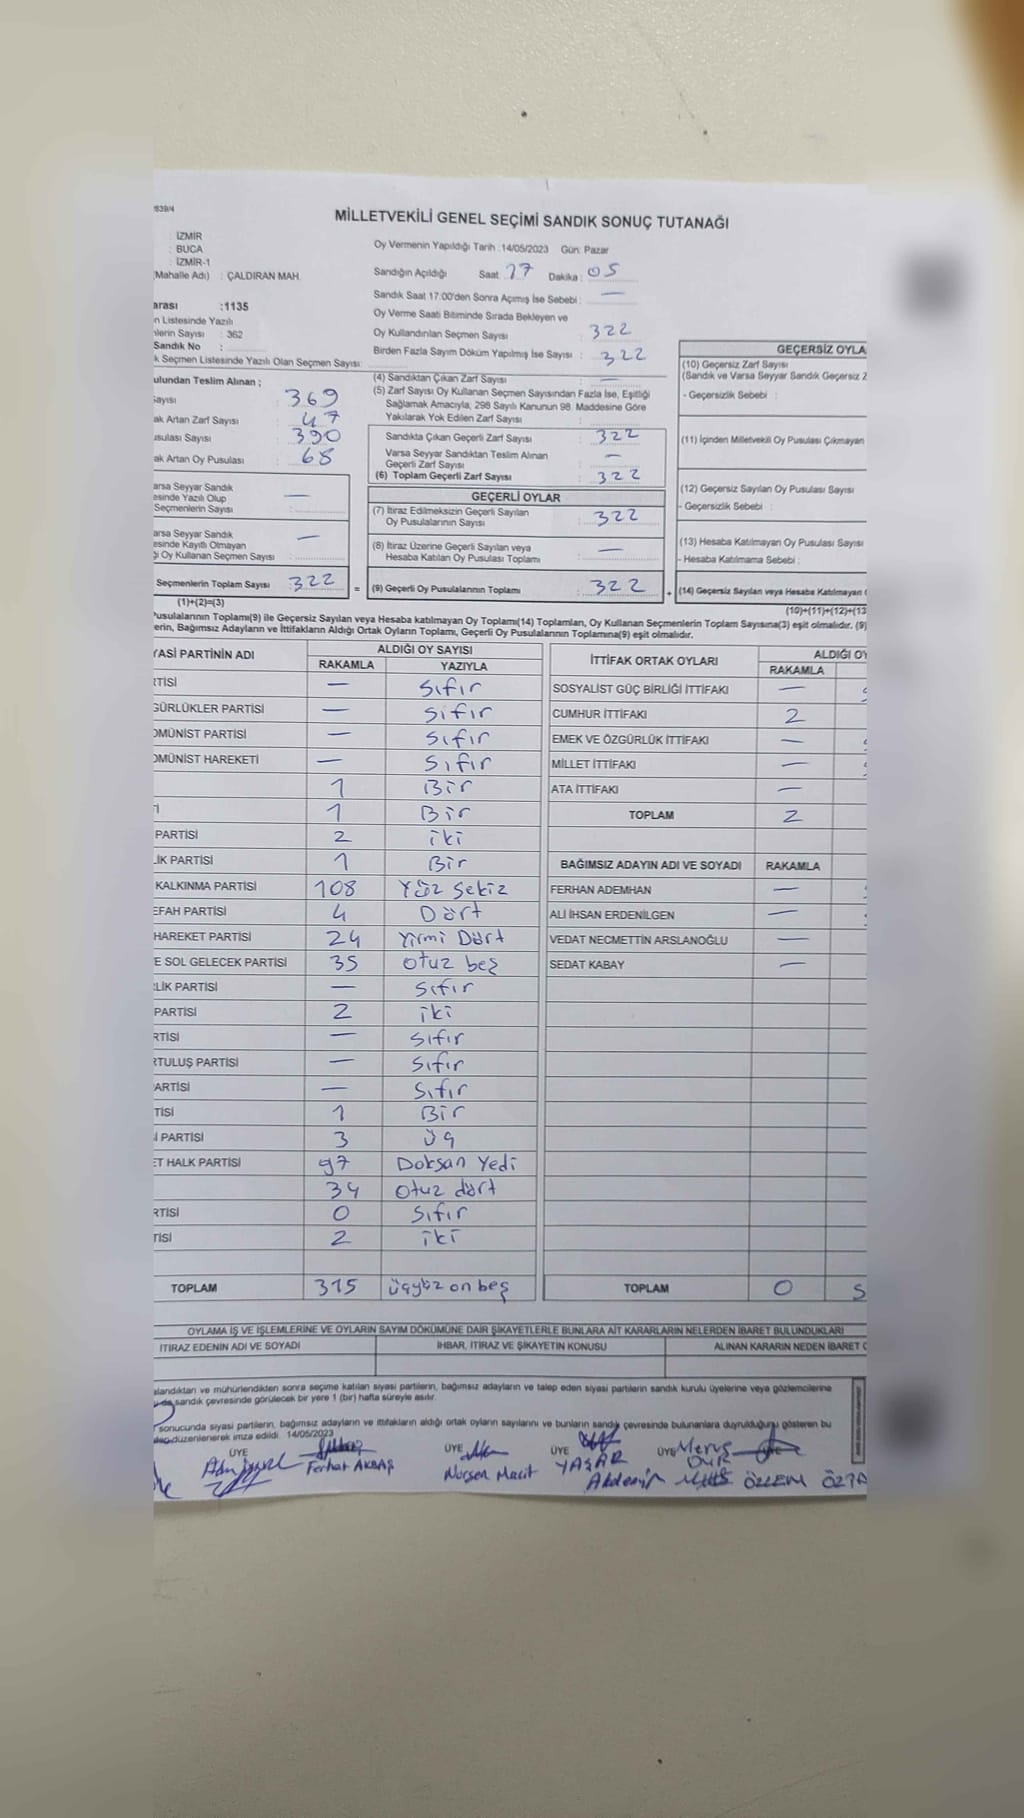 839/4
MİLLETVEKİLİ GENEL SEÇİMİ SANDIK SONUÇ TUTANAĞI
: İZMİR
: BUCA
: İZMİR-1
(Mahalle Adı) : ÇALDIRAN MAH.
Oy Vermenin Yapıldığı Tarih : 14/05/2023 Gün: Pazar
Sandığın Açıldığı Saat : 17 Dakika : 05
Sandık Saat 17:00'den Sonra Açımış İse Sebebi : —
Oy Verme Saati Bitiminde Sırada Bekleyen ve
Oy Kullandırılan Seçmen Sayısı 322
Birden Fazla Sayım Döküm Yapılmış İse Sayısı : 322
arası :1135
n Listesinde Yazılı
nlerin Sayısı : 362
Sandık No :
k Seçmen Listesinde Yazılı Olan Seçmen Sayısı :
ulundan Teslim Alınan ;
ayısı : 369
ak Artan Zarf Sayısı : 47
usulası Sayısı : 390
ak Artan Oy Pusulası : 68
arsa Seyyar Sandık
esinde Yazılı Olup
Seçmenlerin Sayısı : —
arsa Seyyar Sandık
esinde Kayıtlı Olmayan
ği Oy Kullanan Seçmen Sayısı : —
Seçmenlerin Toplam Sayısı : 322
(1)+(2)=(3)
(4) Sandıktan Çıkan Zarf Sayısı : —
(5) Zarf Sayısı Oy Kullanan Seçmen Sayısından Fazla İse, Eşitliği
Sağlamak Amacıyla, 298 Sayılı Kanunun 98. Maddesine Göre
Yakılarak Yok Edilen Zarf Sayısı :
Sandıkta Çıkan Geçerli Zarf Sayısı : 322
Varsa Seyyar Sandıktan Teslim Alınan
Geçerli Zarf Sayısı : —
(6) Toplam Geçerli Zarf Sayısı : 322
GEÇERLİ OYLAR
(7) İtiraz Edilmeksizin Geçerli Sayılan
Oy Pusulalarının Sayısı : 322
(8) İtiraz Üzerine Geçerli Sayılan veya
Hesaba Katılan Oy Pusulası Toplamı : —
= (9) Geçerli Oy Pusulalarının Toplamı : 322 +
GEÇERSİZ OYLA
(10) Geçersiz Zarf Sayısı
(Sandık ve Varsa Seyyar Sandık Geçersiz Z
- Geçersizlik Sebebi :
(11) İçinden Milletvekili Oy Pusulası Çıkmayan
(12) Geçersiz Sayılan Oy Pusulası Sayısı
- Geçersizlik Sebebi :
(13) Hesaba Katılmayan Oy Pusulası Sayısı
- Hesaba Katılmama Sebebi :
(14) Geçersiz Sayılan veya Hesaba Katılmayan
(10)+(11)+(12)+(13
Pusulalarının Toplamı(9) ile Geçersiz Sayılan veya Hesaba katılmayan Oy Toplamı(14) Toplamları, Oy Kullanan Seçmenlerin Toplam Sayısına(3) eşit olmalıdır. (9)
erin, Bağımsız Adayların ve İttifakların Aldığı Ortak Oyların Toplamı, Geçerli Oy Pusulalarının Toplamına(9) eşit olmalıdır.
YASİ PARTİNİN ADI ALDIĞI OY SAYISI
RAKAMLA YAZIYLA
RTİSİ — Sıfır
GÜRLÜKLER PARTİSİ — Sıfır
OMÜNİST PARTİSİ — Sıfır
OMÜNİST HAREKETİ — Sıfır
1 Bir
İ 1 Bir
PARTİSİ 2 iki
LİK PARTİSİ 1 Bir
KALKINMA PARTİSİ 108 Yüz Sekiz
EFAH PARTİSİ 4 Dört
HAREKET PARTİSİ 24 Yirmi Dört
E SOL GELECEK PARTİSİ 35 otuz beş
LİK PARTİSİ — Sıfır
PARTİSİ 2 iki
RTİSİ — Sıfır
RTULUŞ PARTİSİ — Sıfır
ARTİSİ — Sıfır
TİSİ 1 Bir
İ PARTİSİ 3 Üç
ET HALK PARTİSİ 97 Doksan Yedi
34 otuz dört
RTİSİ 0 Sıfır
TİSİ 2 iki
TOPLAM 315 üçyüz on beş
İTTİFAK ORTAK OYLARI ALDIĞI OY
RAKAMLA
SOSYALİST GÜÇ BİRLİĞİ İTTİFAKI —
CUMHUR İTTİFAKI 2
EMEK VE ÖZGÜRLÜK İTTİFAKI —
MİLLET İTTİFAKI —
ATA İTTİFAKI —
TOPLAM 2
BAĞIMSIZ ADAYIN ADI VE SOYADI RAKAMLA
FERHAN ADEMHAN —
ALİ İHSAN ERDENİLGEN —
VEDAT NECMETTİN ARSLANOĞLU —
SEDAT KABAY —
TOPLAM 0 S
OYLAMA İŞ VE İŞLEMLERİNE VE OYLARIN SAYIM DÖKÜMÜNE DAİR ŞİKAYETLERLE BUNLARA AİT KARARLARIN NELERDEN İBARET BULUNDUKLARI
İTİRAZ EDENİN ADI VE SOYADI İHBAR, İTİRAZ VE ŞİKAYETİN KONUSU ALINAN KARARIN NEDEN İBARET O
alandıktan ve mühürlendikten sonra seçime katılan siyasi partilerin, bağımsız adayların ve talep eden siyasi partilerin sandık kurulu üyelerine veya gözlemcilerine
sandık çevresinde görülecek bir yere 1 (bir) hafta süreyle asılır.
sonucunda siyasi partilerin, bağımsız adayların ve ittifakların aldığı ortak oyların sayılarını ve bunların sandık çevresinde bulunanlara duyrulduğunu gösteren bu
düzenlenerek imza edildi. 14/05/2023
ÜYE ÜYE ÜYE ÜYE
Ferhat AKBAŞ Nurşen Macit YAŞAR Akdemir ÖZLEM ÖZTA